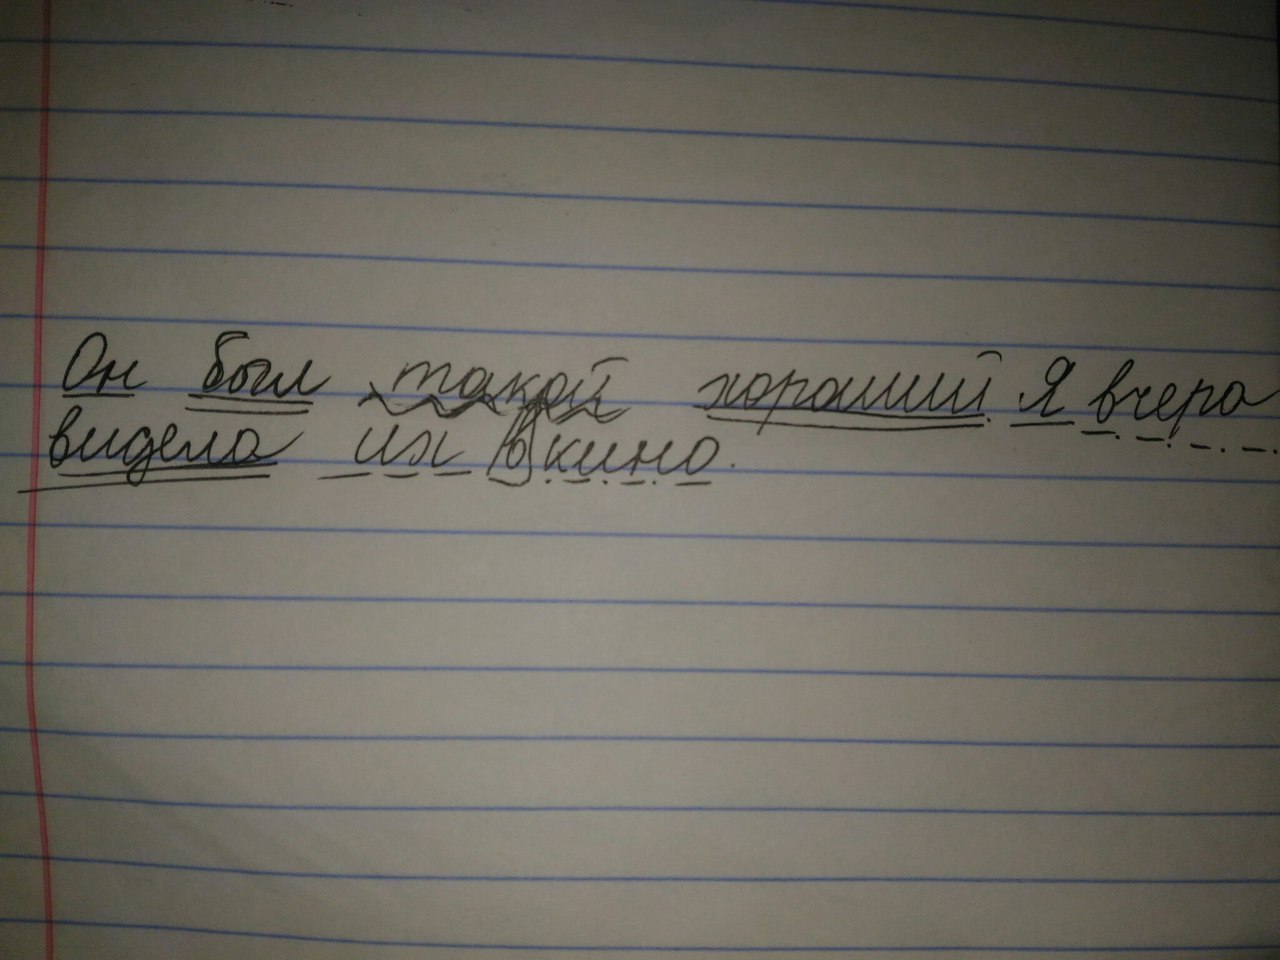 Он был такой хороший. Я вчера
видела их в кино.